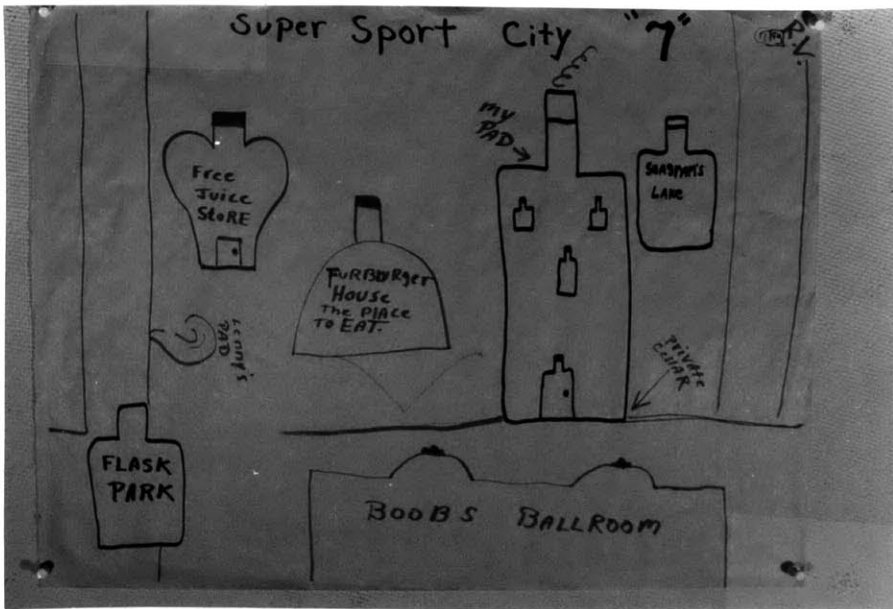 Super Sport City "7"
P.V.
my
PAD
Free
Juice
StoRE
LANE
FURBURger
HousE
The PLAcE
To EAT.
Lenny's
PAD
PRIVATE
CELLAR
FLASK
PARK
BOOBS BALLROOM